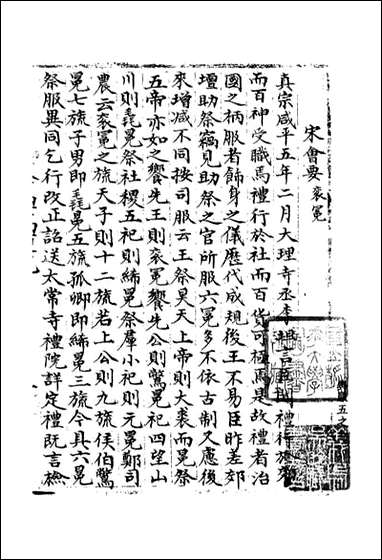 宋會要 袞冕
真宗咸平五年二月大理寺丞李 言 禮行於
而百神受職焉禮行於社而百貨可極焉是故禮者治
國之柄服者飾身之儀歷代成規後王不易臣昨差郊
壇助祭竊見助祭之官所服六冕多不依古制又慮後
來增減不同按司服云王祭昊天上帝則大裘而冕祭
五帝亦如之饗先王則袞冕饗先公則鷩冕祀四望山
川則毳冕祭社稷五祀則絺冕祭羣小祀則元冕鄭司
農云袞冕之旒天子則十二旒若上公則九旒侯伯鷩
冕七旒子男即毳冕五旒孤卿即絺冕三旒今具六冕
祭服異同乞行改正詔送太常寺禮院詳定禮既言檢